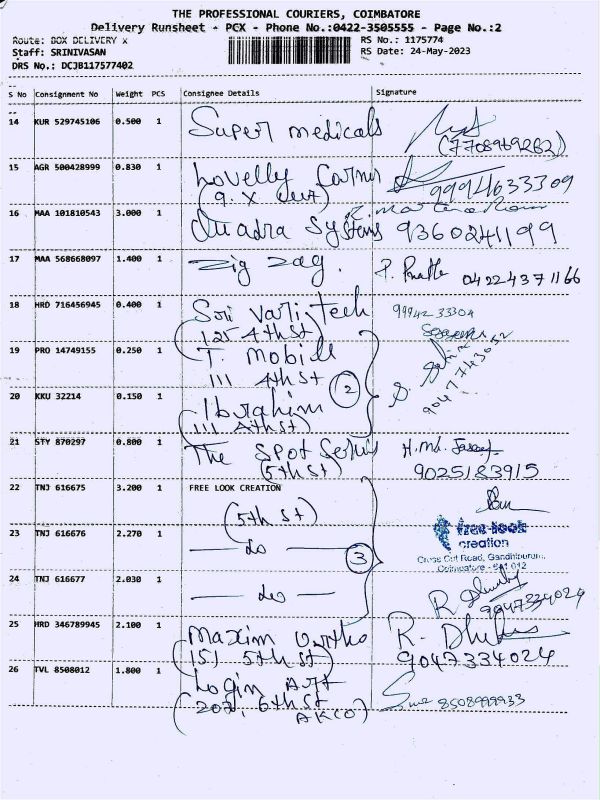 THE PROFESSIONAL COURIERS, COIMBATORE
Delivery Runsheet - PCX - Phone No.:0422-3505555 - Page No.:2
Route: BOX DELIVERY X
RS No.: 1175774
Staff: SRINIVASAN
RS Date: 24-May-2023
DRS No.: DCJB117577402
S No Consignment No Weight PCS Consignee Details Signature
14 KUR 529745106 0.500 1 Super medicals
(7708969262)
15 AGR 500428999 0.830 1 Lovelly Corner 9994633309
(9. X cut)
16 MAA 101810543 3.000 1 Quadra Systems 9360241199
17 MAA 568668097 1.400 1 Zig Zag. 04224371166
18 HRD 716456945 0.400 1 Sri Vari Tech 99942 33304
(125 4th St)
19 PRO 14749155 0.250 1 T Mobile
111 4th St
2
9047743052
20 KKU 32214 0.150 1 Ibrahim
(111 4th St)
21 STY 870297 0.800 1 The Spot Serius
(5th St) 9025183915
22 TNJ 616675 3.200 1 FREE LOOK CREATION
(5th St)
23 TNJ 616676 2.270 1 — do —
3
free look
creation
Cross Cut Road, Gandhipuram,
Coimbatore - 641 012
24 TNJ 616677 2.030 1 — do —
9047334024
25 HRD 346789945 2.100 1 Maxim Ortho R.
(151 5th St) 9047334024
26 TVL 8508012 1.800 1 Login Art 8508999933
(202, 6th St
AKCO)